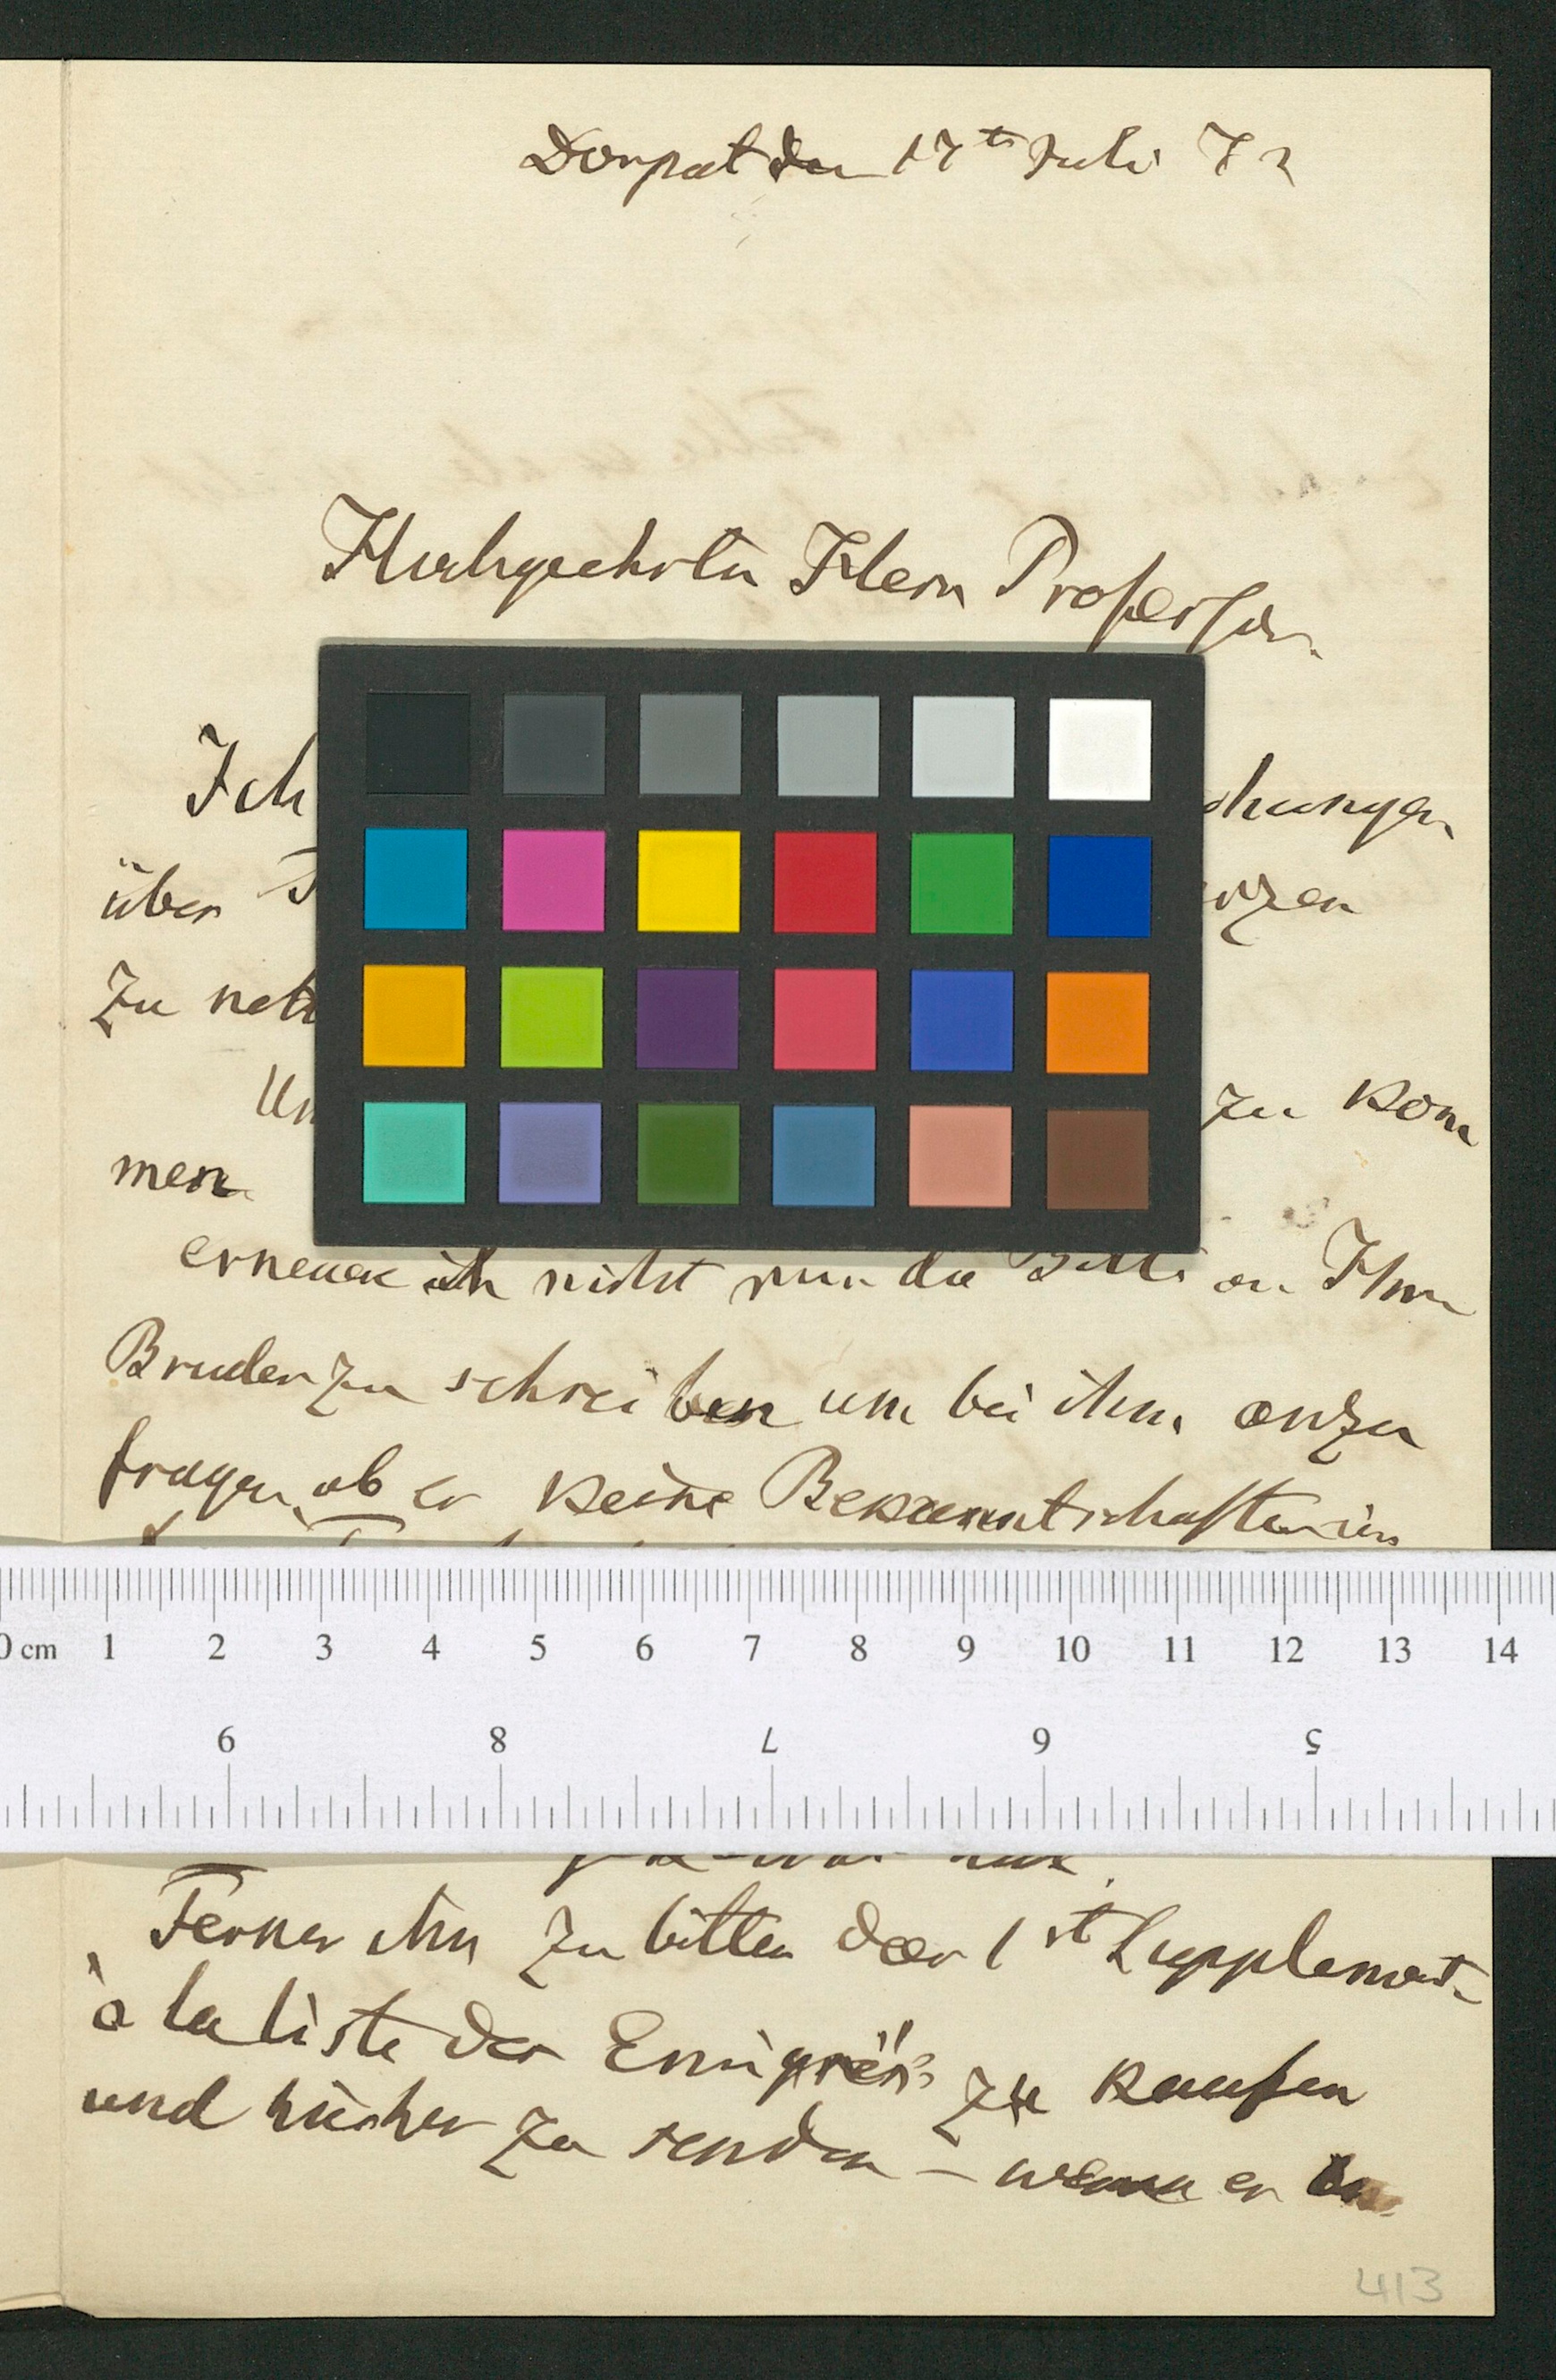 Dorpat den 17te Juli 72
Hochgeehrter Herr Professor
Ich
chungen
über
zen
zu neh
Um
zu kom
men
erneuere ich nicht nur die Bitte an Ihren
Bruder zu schreiben um bei ihm anzu
fragen ob er keine Bekanntschaften in
0 cm 1 2 3 4 5 6 7 8 9 10 11 12 13 14
9 8 7 6 5
Ferner ihn zu bitten das 1st Supplement
à la liste des Emigrés zu kaufen
und hieher zu senden – wenn er
413